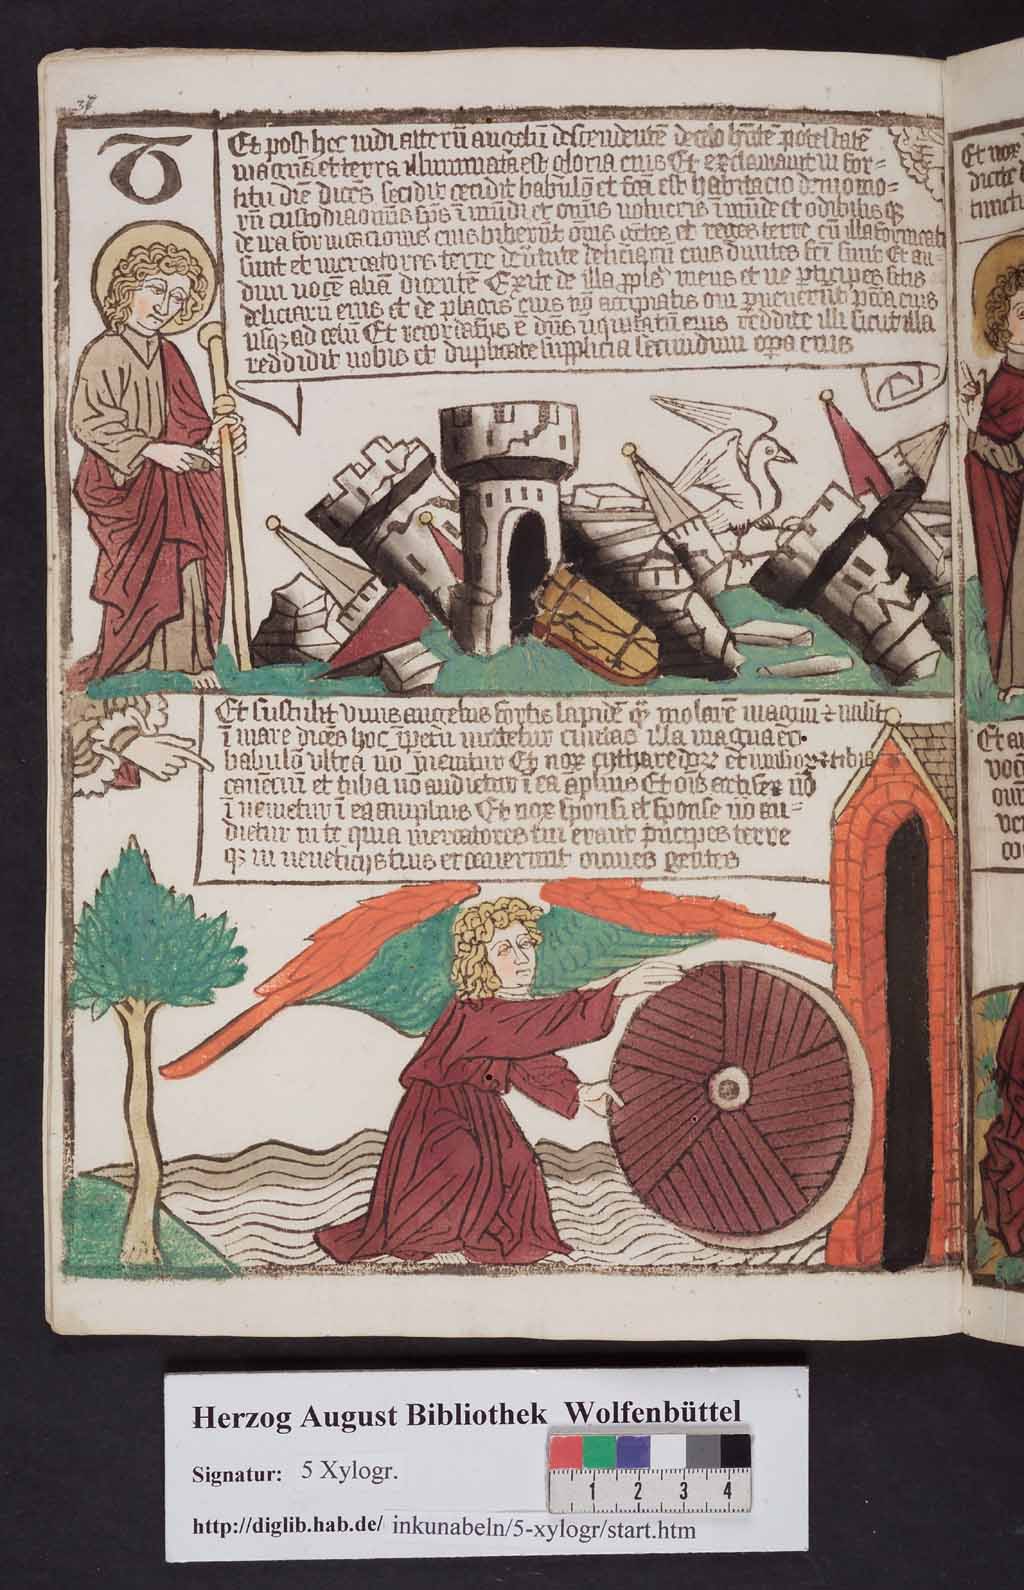 37
T
Et post hec vidi alterū angelū descendentē de celo hñtē potestatē
magnā et terra illuminata est gloria eius Et exclamavit in for=
titudine dicēs Cecidit cecidit babulō et fca est habitacio demonio=
rū custodia omīs sps īmūdi et omīs volucris īmūde et odibilis q̄
de ira fornicacionis eius biberūt oēs gētes et reges terre cū illa fornicati
sunt et mercatores terre de v̄tute deliciarū eius divites fcī sunt Et au=
divi vocē aliā dicentē Exite de illa pplȩ meus et ne pticipes sitis
deliciarū eius et de plagis eius nō accipiatis qm pvenerūt pcca eius
usq; ad celū Et recordatus ē dūs iniquitatū eius reddite illi sicut illa
reddidit vobis et duplicate supplicia secundum opera eius
Et sustulit vnus angelus fortis lapidē q̄ molarē magnū et misit
ī mare dicēs hoc īpetu mittetur civitas illa magna
babulō ultra nō īvenietur Et vox cytharedor et et tibia
canēciū et tuba nō audietur ī ea āplius Et oīs artifex nō
īvenietur ī ea amplius Et vox sponsi et sponse nō au=
dietur in te quia mercatores tui erant prīcipes terre
q̄ in veneficijs tuis erraverunt omnes gentes
Et vox
dicēte
Et au
vog
Herzog August Bibliothek Wolfenbüttel
Signatur: 5 Xylogr.
1 2 3 4
http://diglib.hab.de/ inkunabeln/5-xylogr/start.htm